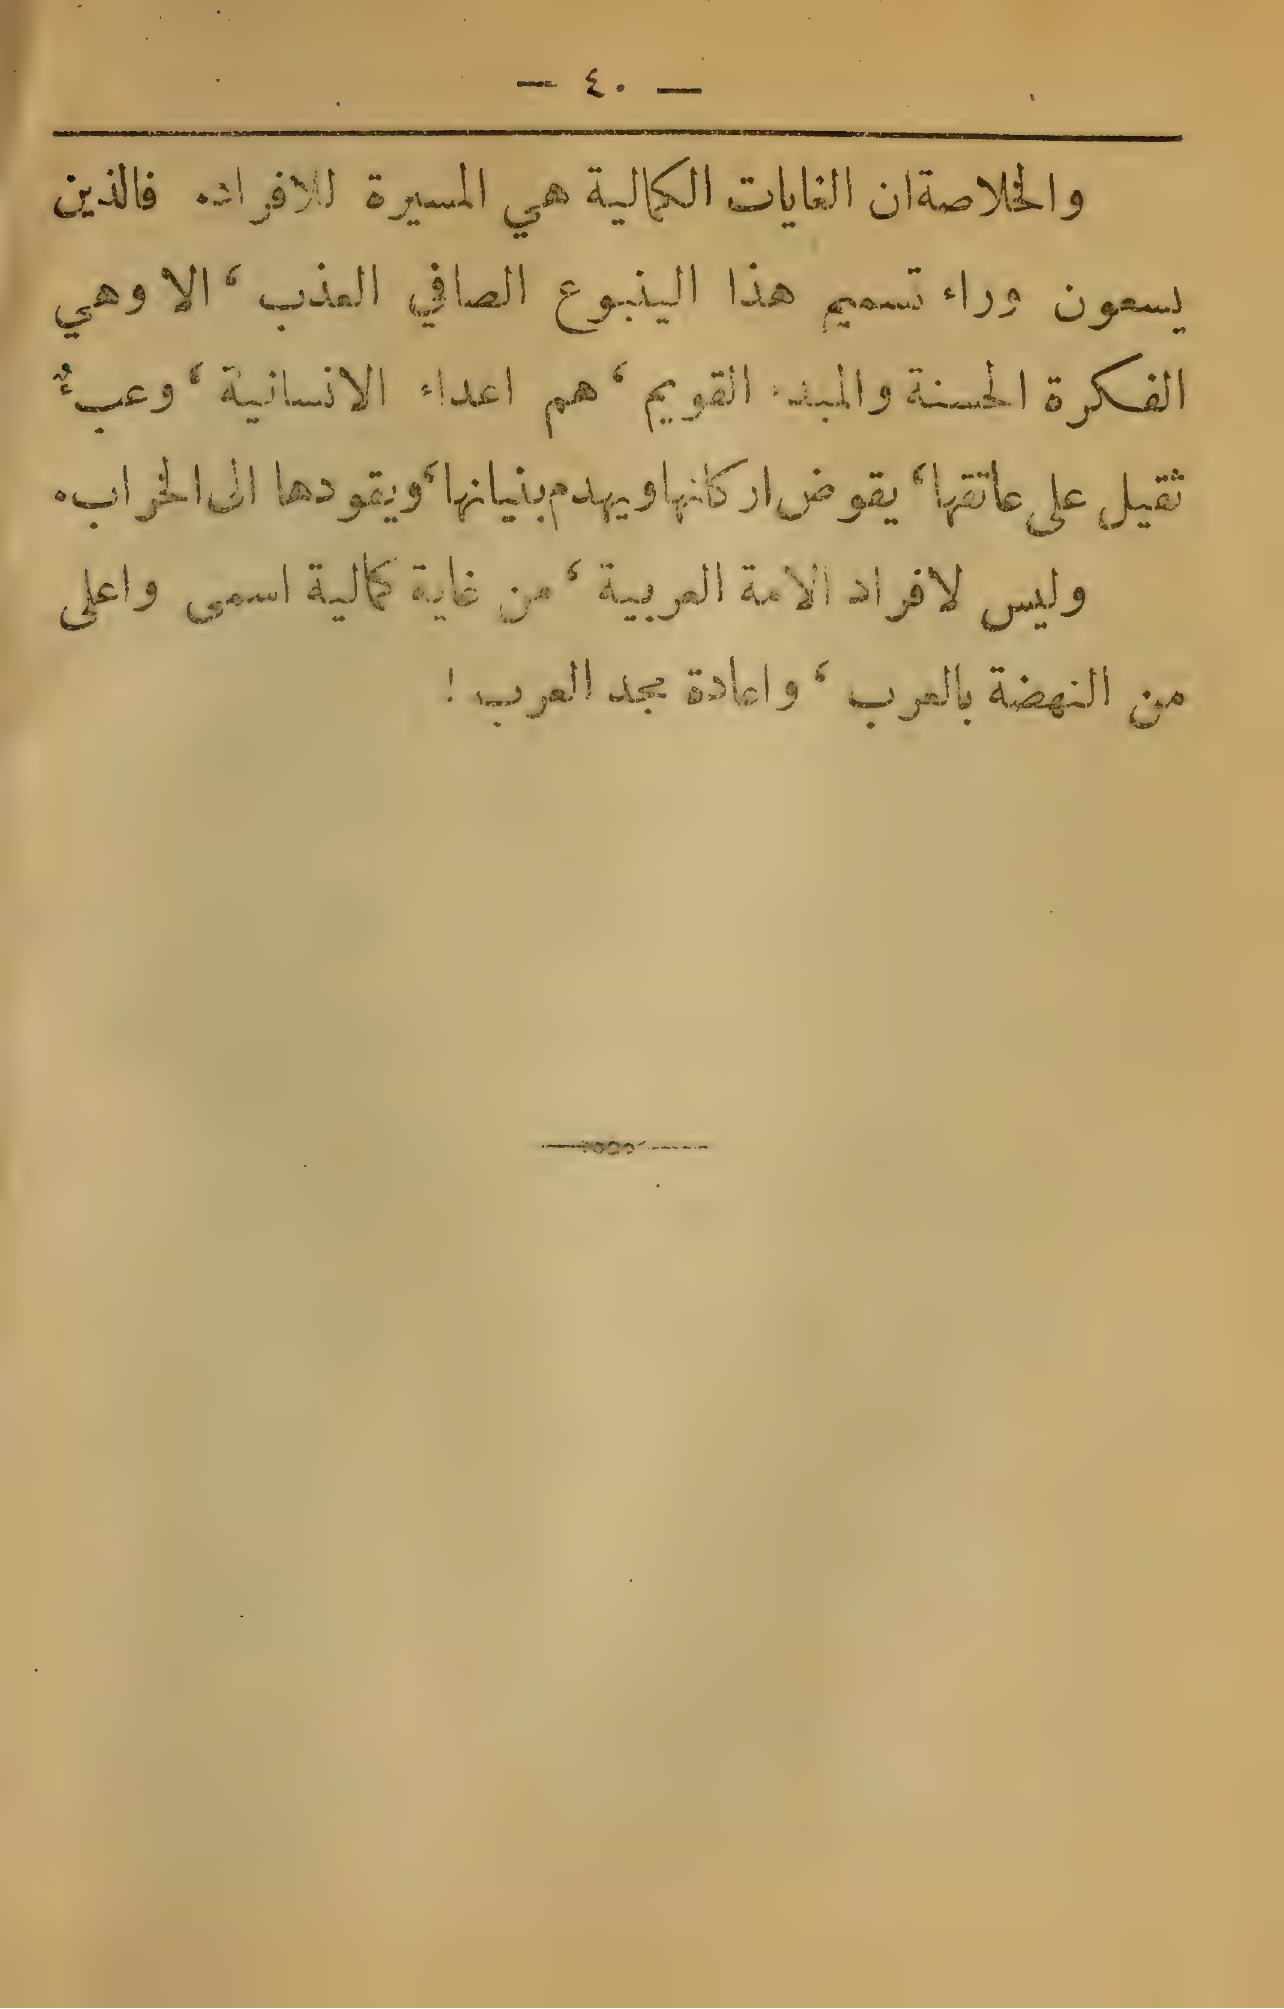 — ٤٠ —
والخلاصة ان الغايات الكمالية هي المسيرة للافراد. فالذين
يسعون وراء تسميم هذا الينبوع الصافي العذب ، الا وهي
الفكرة الحسنة والمبدء القويم ، هم اعداء الانسانية ، وعبءٌ
ثقيل على عاتقها ، يقوض اركانها ويهدم بنيانها ، ويقودها الى الخراب.
وليس لافراد الامة العربية ، من غاية كمالية اسمى واعلى
من النهضة بالعرب ، واعادة مجد العرب !